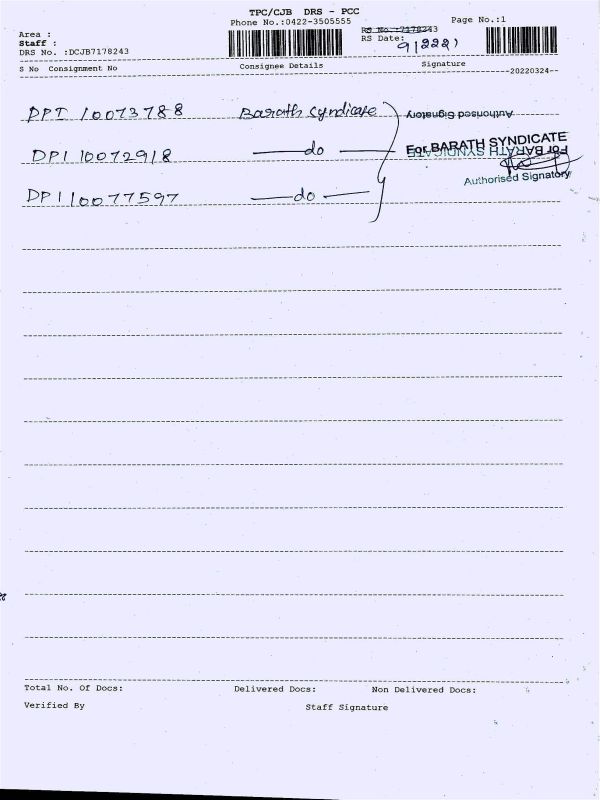 TPC/CJB DRS - PCC
Phone No.:0422-3505555
Page No.:1
Area :
Staff :
DRS No. :DCJB7178243
RS No.:7178243
RS Date:
S No Consignment No
Consignee Details
Signature
20220324
DPI 10073788 Barath Syndicate
Authorised Signatory
DPI 10072918 do
For BARATH SYNDICATE
For BARATH SYNDICATE
Authorised Signatory
DPI 10077597 do
Total No. Of Docs: Delivered Docs: Non Delivered Docs:
Verified By Staff Signature